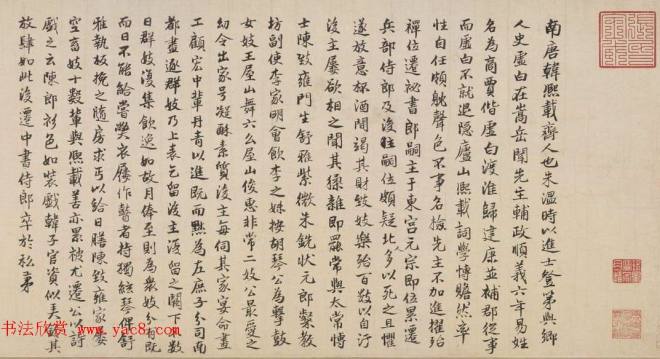 南唐韓熙載齊人也朱溫時以進士登第與鄉
人史虛白在嵩岳聞先主輔政順義六年易姓
名為商賈偕虛白渡淮歸建康並補郡從事
而虛白不就退隱廬山熙載詞學博贍然率
性自任頗耽聲色不事名檢先主不加進擢殆
禪位遷秘書郎嗣主于東宮元宗即位累遷
兵部侍郎及後主嗣位頗疑北人多以死之且懼
遂放意杯酒間竭其財致妓樂殆百數以自汙
後主屢欲相之聞其猱雜即罷常與太常博
士陳致雍門生舒雅紫微朱銑狀元郎粲教
坊副使李家明會飲李之妹按胡琴公為擊鼓
女妓王屋山舞六么屋山俊惠非常二妓公最愛之
幼令出家號凝酥素質後主每伺其家宴命畫
工顧宏中輩丹青以進既而黜為左庶子分司南
都盡逐群妓乃上表乞留後主復留之闕下不數
日群妓復集飲逸如故月俸至則為眾妓分有既
而日不能給嘗獘衣屨作瞽者持獨絃琴俾舒
雅執板挽之隨房求丐以給日膳陳致雍家屢
空蓄妓十數輩與熙載善亦累被尤遷公以詩
戲之云陳郎衫色如裝戲韓子官資似美鈴其
放肆如此後遷中書侍郎卒於私第
书法欣赏
www.yac8.com